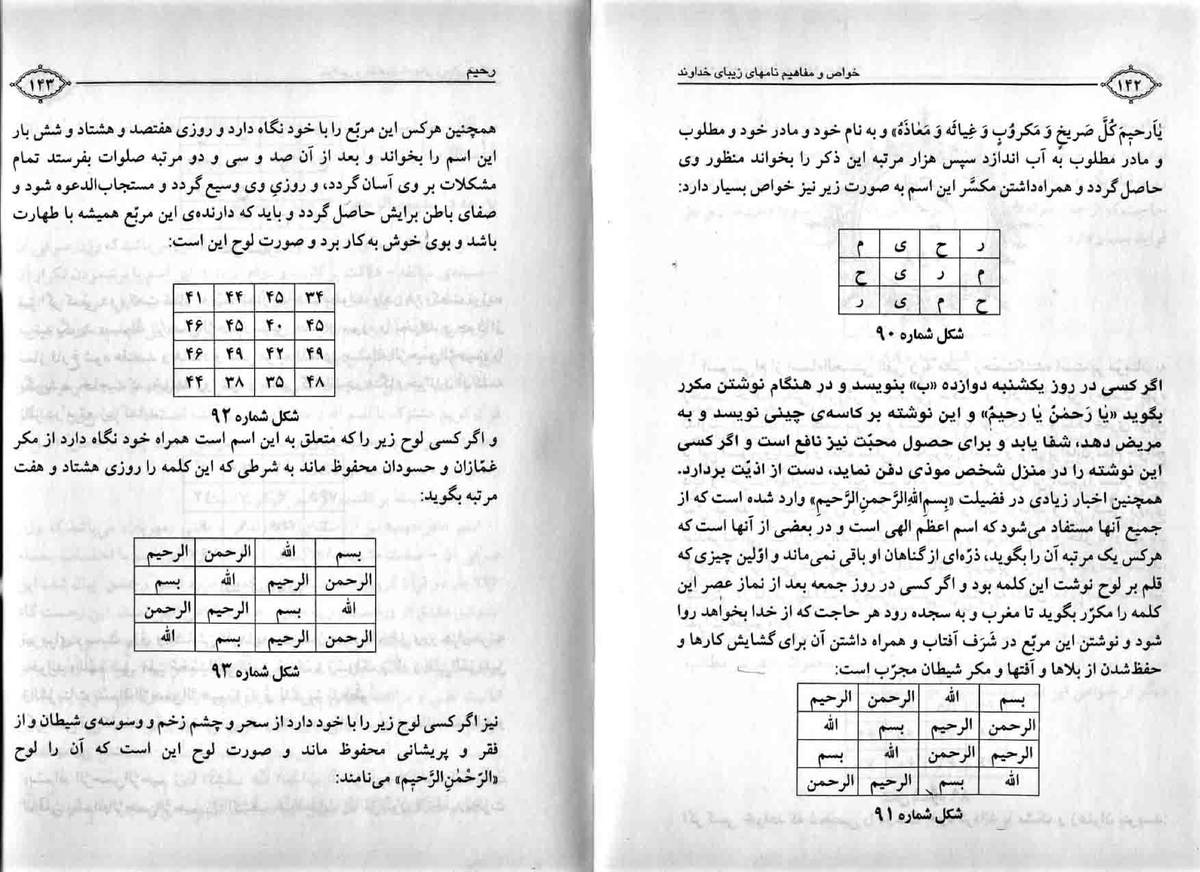 ۱۴۲
خواص و مفاهیم نامهای زیبای خداوند
یٰاَرحیمَ کُلَّ صَریخٍ وَ مَکروُبٍ وَ غِیاثَه وَ مَعاذَهُ» و به نام خود و مادر خود و مطلوب
و مادر مطلوب به آب اندازد سپس هزار مرتبه این ذکر را بخواند منظور وی
حاصل گردد و همراه‌داشتن مکسَّر این اسم به صورت زیر نیز خواص بسیار دارد:
ر ح ی م
م ر ی ح
ح م ی ر
شکل شماره ۹۰
اگر کسی در روز یکشنبه دوازده «ب» بنویسد و در هنگام نوشتن مکرر
بگوید «یٰا رَحمٰنُ یٰا رحیمُ» و این نوشته بر کاسه‌ی چینی نویسد و به
مریض دهد، شفا یابد و برای حصول محبّت نیز نافع است و اگر کسی
این نوشته را در منزل شخص موذی دفن نماید، دست از اذیّت بردارد.
همچنین اخبار زیادی در فضیلت «بِسمِ‌اللهِ‌الرَّحمنِ‌الرَّحیمِ» وارد شده است که از
جمیع آنها مستفاد می‌شود که اسم اعظم الهی است و در بعضی از آنها است که
هرکس یک مرتبه آن را بگوید، ذرّه‌ای از گناهان او باقی نمی‌ماند و اوّلین چیزی که
قلم بر لوح نوشت این کلمه بود و اگر کسی در روز جمعه بعد از نماز عصر این
کلمه را مکرّر بگوید تا مغرب و به سجده رود هر حاجت که از خدا بخواهد روا
شود و نوشتن این مربّع در شَرَف آفتاب و همراه داشتن آن برای گشایش کارها و
حفظ‌شدن از بلاها و آفتها و مکر شیطان مجرّب است:
بسم الله الرحمن الرحیم
الرحمن الرحیم بسم الله
الرحیم الرحمن الله بسم
الله بسم الرحیم الرحمن
شکل شماره ۹۱
رحیم
۱۴۳
همچنین هرکس این مربّع را با خود نگاه دارد و روزی هفتصد و هشتاد و شش بار
این اسم را بخواند و بعد از آن صد و سی و دو مرتبه صلوات بفرستد تمام
مشکلات بر وی آسان گردد، و روزیِ وی وسیع گردد و مستجاب‌الدعوه شود و
صفای باطن برایش حاصل گردد و باید که دارنده‌ی این مربّع همیشه با طهارت
باشد و بوی خوش به کار برد و صورت لوح این است:
۴۱ ۴۴ ۴۵ ۳۴
۴۶ ۴۵ ۴۰ ۴۵
۴۶ ۴۹ ۴۲ ۴۹
۴۴ ۳۸ ۳۵ ۴۸
شکل شماره ۹۲
و اگر کسی لوح زیر را که متعلق به این اسم است همراه خود نگاه دارد از مکر
غمّازان و حسودان محفوظ ماند به شرطی که این کلمه را روزی هشتاد و هفت
مرتبه بگوید:
بسم الله الرحمن الرحیم
الرحمن الرحیم الله بسم
الله بسم الرحیم الرحمن
الرحمن الرحیم بسم الله
شکل شماره ۹۳
نیز اگر کسی لوح زیر را با خود دارد از سحر و چشم زخم و وسوسه‌ی شیطان و از
فقر و پریشانی محفوظ ماند و صورت لوح این است که آن را لوح
«الرّحْمٰنِ‌الرَّحیٖمِ» می‌نامند: